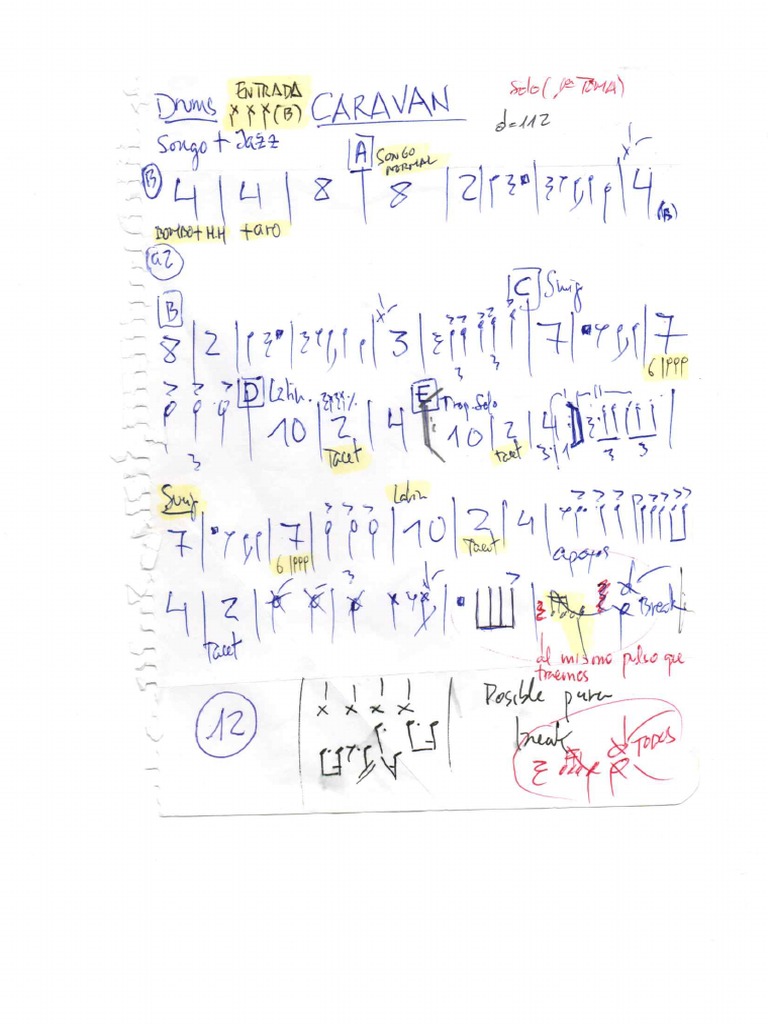 Drums ENTRADA (B) CARAVAN
Solo (1ª TOMA)
Songo + Jazz
d=112
A SONGO NORMAL
B 4 | 4 | 8 | 8 | 2 | 4 (B)
BOMBO + H.H + aro
a2
B C Swing
8 | 2 | 3 | 7 | 7
3 3 6 | PPP
D Latin. E Trop. Solo
3 10 | 2 | 4 10 | 2 | 4
Tacet Tacet 3 3
Swing Latin
7 | 7 | 10 | 2 | 4
6 | PPP Tacet apoyos
4 | 2 | 3 Break
Tacet
al mismo pulso que
traemos
12
Posible para
break
TODOS